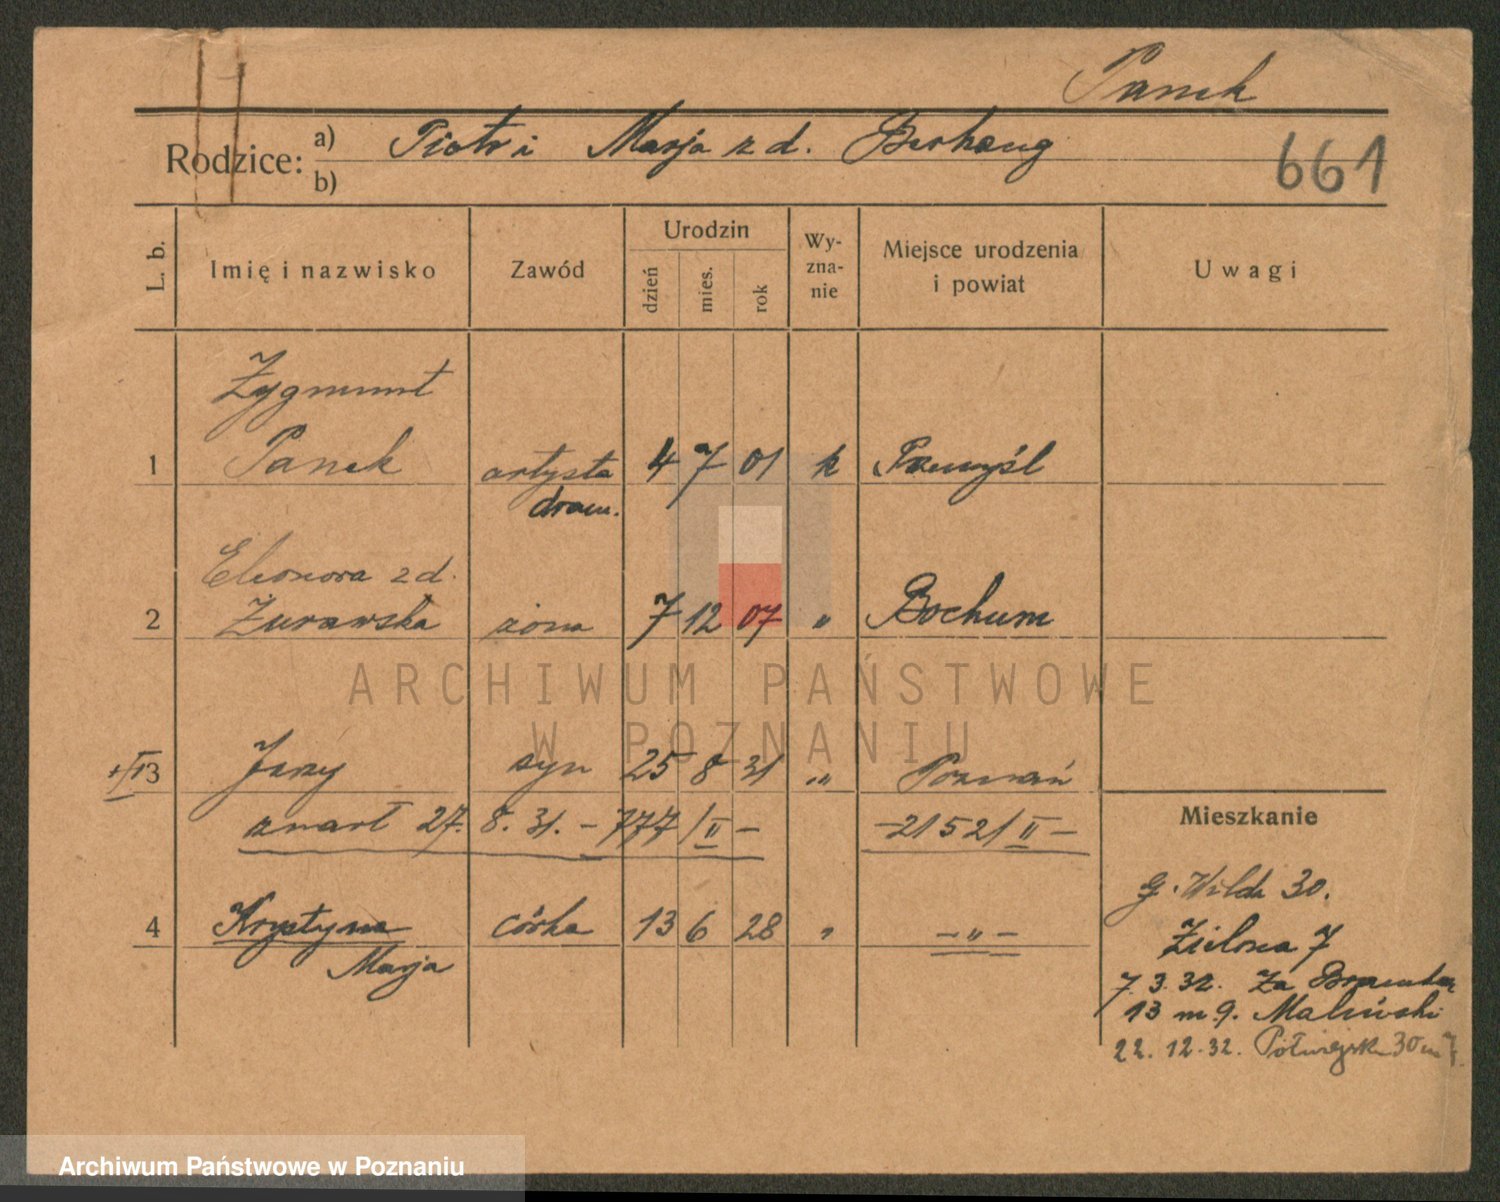 Panek
Rodzice: a) Piotr i Marja z d. Berhang
b)
661
L. b. Imię i nazwisko Zawód Urodzin dzień mies. rok Wy-zna-nie Miejsce urodzenia i powiat Uwagi
Zygmunt
1 Panek artysta 4 7 01 k Przemyśl
dram.
Eleonora z d.
2 Żurawska żona 7 12 07 " Bochum
3 Jerzy syn 25 8 31 " Poznań
zmarł 27. 8. 31. – 777/II – – 2152/II –
Mieszkanie
4 Krystyna córka 13 6 28 " – " –
Marja
G. Wilda 30.
Zielona 7
7.3.32. Za Bramką
13 m 9. Malewski
22.12.32. Półwiejska 30 m
ARCHIWUM PAŃSTWOWE
W POZNANIU
Archiwum Państwowe w Poznaniu